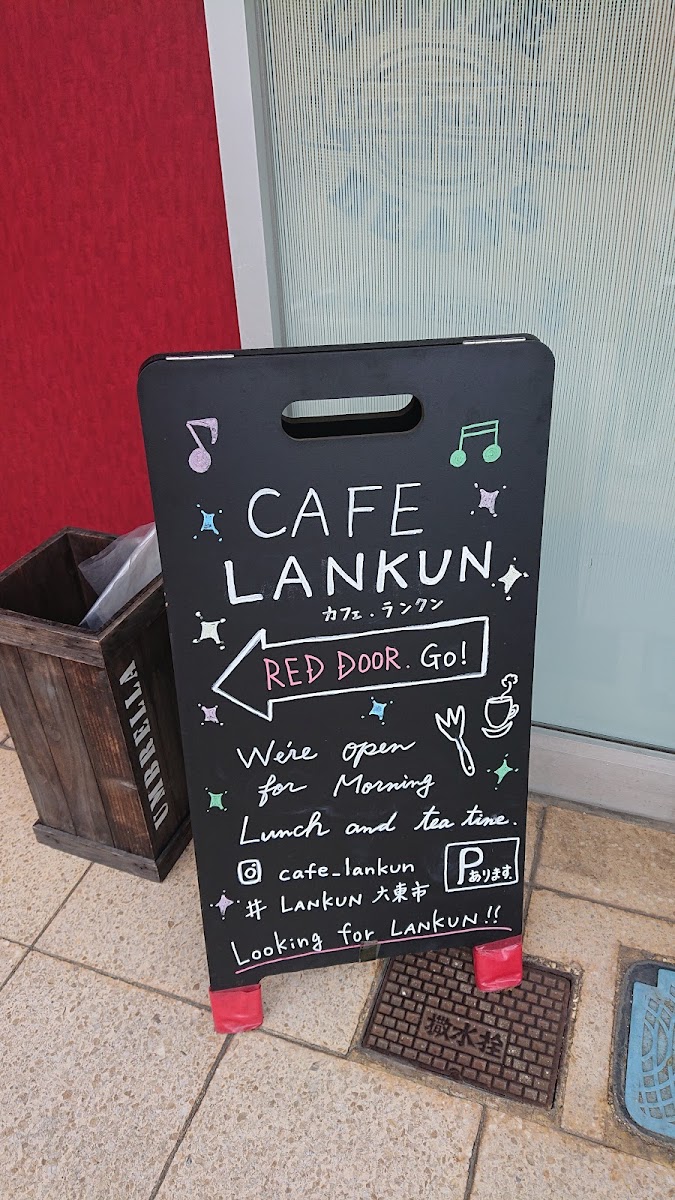 CAFE
LANKUN
カフェ.ランクン
RED DOOR. Go!
We're open
for Morning
Lunch and tea time.
cafe_lankun
Pあります
# LANKUN 大東市
Looking for LANKUN!!
UMBRELLA
撒水栓